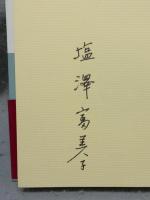 塩澤富美子